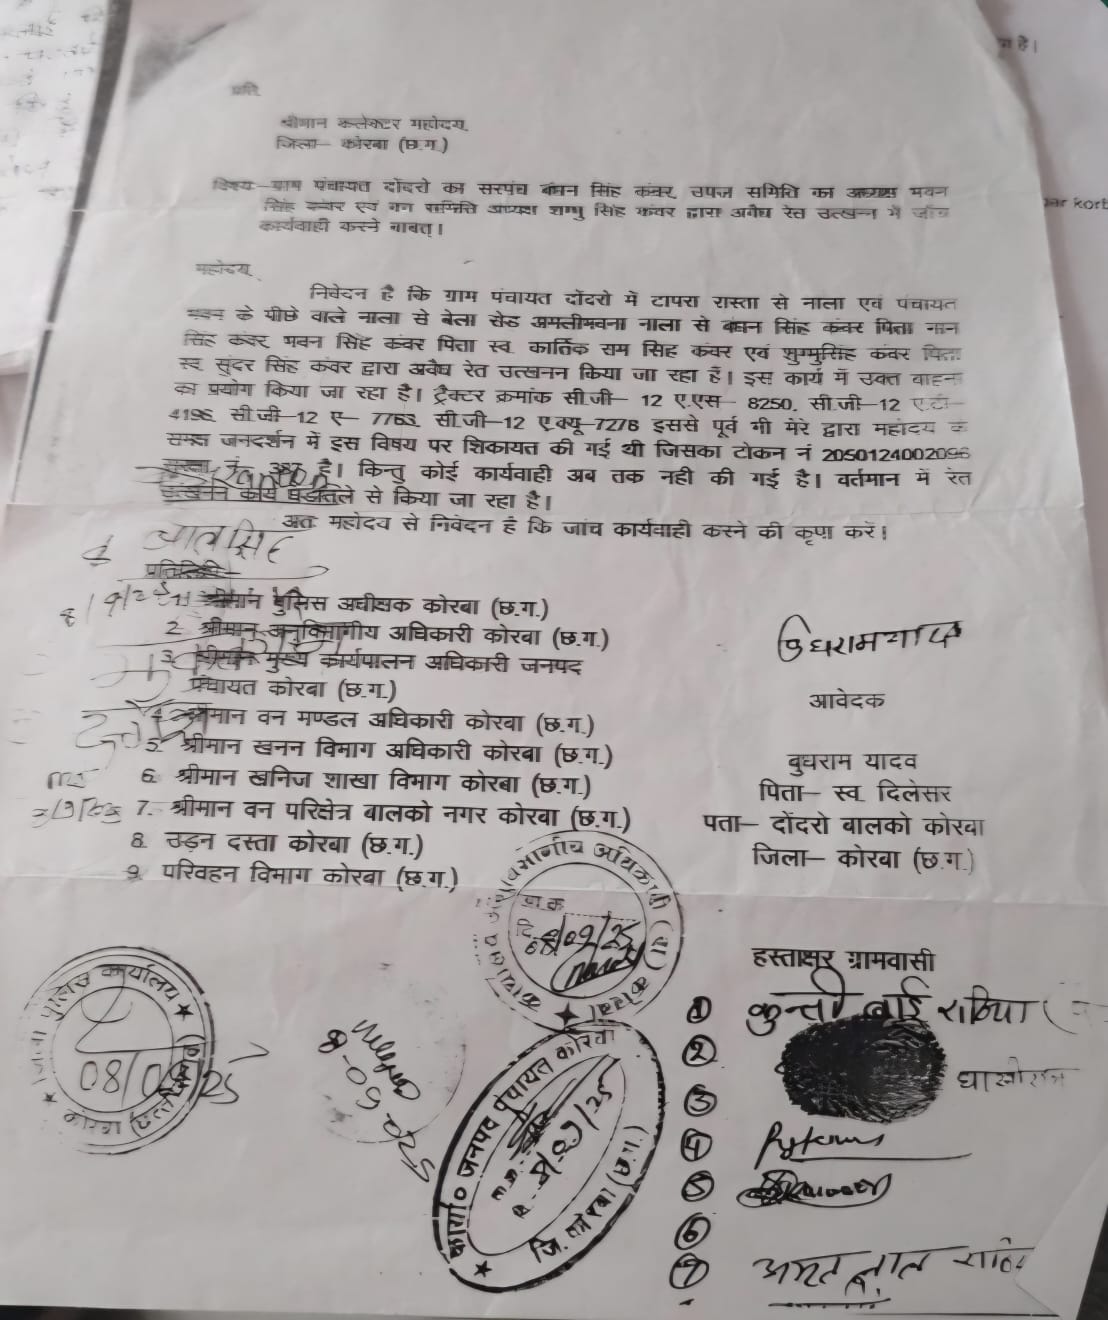 प्रति,
श्रीमान कलेक्टर महोदय,
जिला– कोरबा (छ.ग.)
विषय–ग्राम पंचायत दोंदरो का सरपंच बंधन सिंह कंवर, उपज समिति का अध्यक्ष भवन
सिंह कंवर एवं वन समिति अध्यक्ष शम्भु सिंह कंवर द्वारा अवैध रेत उत्खन्न में जाँच
कार्यवाही करने बाबत्।
महोदय,
निवेदन है कि ग्राम पंचायत दोंदरो में टापरा रास्ता से नाला एवं पंचायत
भवन के पीछे वाले नाला से बेला रोड अमलीभवना नाला से बंधन सिंह कंवर पिता
सिंह कंवर, भवन सिंह कंवर पिता स्व. कार्तिक राम सिंह कंवर एवं शुम्भुसिंह कंवर पिता
स्व. सुंदर सिंह कंवर द्वारा अवैध रेत उत्खनन किया जा रहा है। इस कार्य में उक्त वाहन
का प्रयोग किया जा रहा है। ट्रैक्टर क्रमांक सी.जी– 12 ए.एस– 8250, सी.जी–12 ए.टी–
4196, सी.जी–12 ए– 7763, सी.जी–12 ए.क्यू–7278 इससे पूर्व भी मेरे द्वारा महोदय के
समक्ष जनदर्शन में इस विषय पर शिकायत की गई थी जिसका टोकन नं 2050124002096
है। किन्तु कोई कार्यवाही अब तक नही की गई है। वर्तमान में रेत
उत्खनन कार्य धड़ल्ले से किया जा रहा है।
अतः महोदय से निवेदन है कि जांच कार्यवाही करने की कृपा करें।
प्रतिलिपि–
1. श्रीमान पुलिस अधीक्षक कोरबा (छ.ग.)
2. श्रीमान अनुविभागीय अधिकारी कोरबा (छ.ग.)
3. श्रीमान मुख्य कार्यपालन अधिकारी जनपद
पंचायत कोरबा (छ.ग.)
4. श्रीमान वन मण्डल अधिकारी कोरबा (छ.ग.)
5. श्रीमान खनन विभाग अधिकारी कोरबा (छ.ग.)
6. श्रीमान खनिज शाखा विभाग कोरबा (छ.ग.)
7. श्रीमान वन परिक्षेत्र बालको नगर कोरबा (छ.ग.)
8. उड़न दस्ता कोरबा (छ.ग.)
9. परिवहन विभाग कोरबा (छ.ग.)
आवेदक
बुधराम यादव
पिता– स्व. दिलेसर
पता– दोंदरो बालको कोरबा
जिला– कोरबा (छ.ग.)
हस्ताक्षर ग्रामवासी
① कुन्ती बाई
②
③
④
⑤
⑥
⑦
कार्यालय अनुविभागीय अधिकारी (रा.) कोरबा
08/09/25
जिला पुलिस कार्यालय
08/09/25
कार्या० जनपद पंचायत कोरबा
जि. कोरबा (छ.ग.)